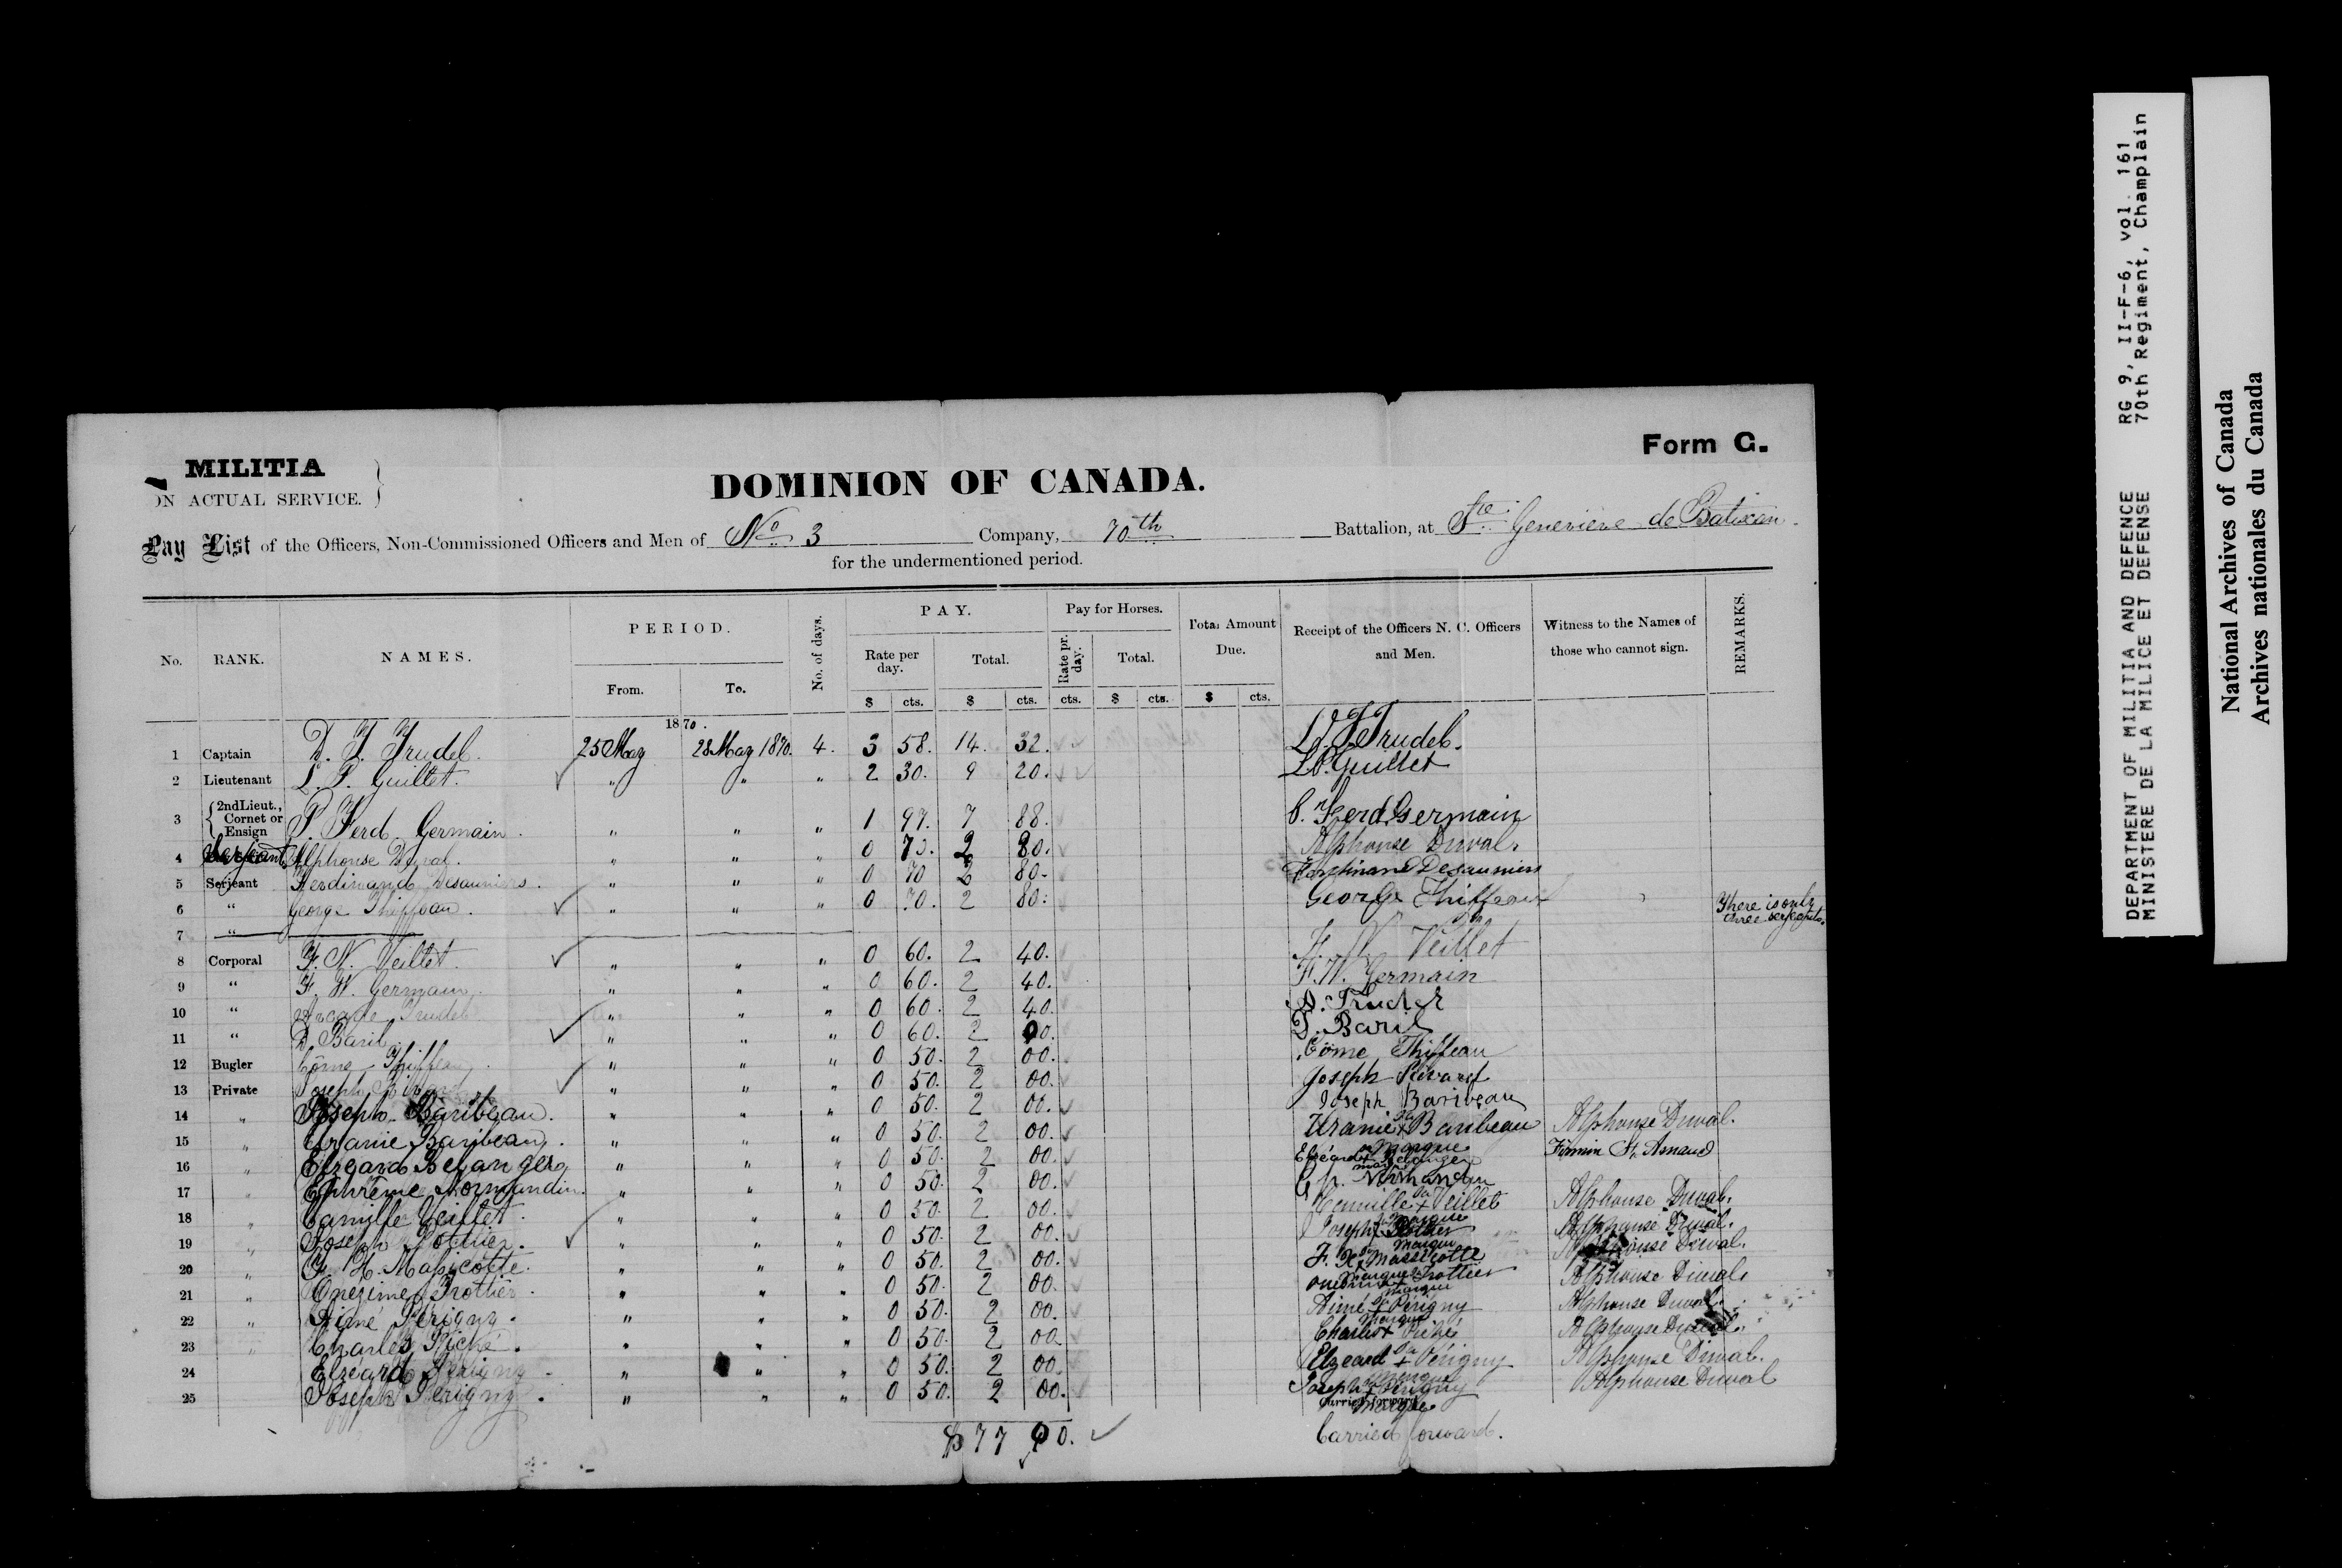 Form G.
MILITIA
ON ACTUAL SERVICE.
DOMINION OF CANADA.
Pay List of the Officers, Non-Commissioned Officers and Men of No 3 Company, 70th Battalion, at Ste Geneviève de Batiscan
for the undermentioned period.
No. RANK. NAMES. PERIOD. No. of days. PAY. Pay for Horses. Total Amount Due. Receipt of the Officers N. C. Officers and Men. Witness to the Names of those who cannot sign. REMARKS.
From. To. Rate per day. Total. Rate pr. day. Total.
$ cts. $ cts. cts. $ cts. $ cts.
1870.
1 Captain D. T. Trudel. 25 May 28 May 1870. 4. 3 58. 14. 32. D. T. Trudel.
2 Lieutenant L. P. Guillet. " " " 2 30. 9 20. L. P. Guillet
3 2nd Lieut., Cornet or Ensign P. Ferd. Germain. " " " 1 97. 7 88. P. Ferd. Germain
4 Serjeant Alphonse Duval. " " " 0 70. 2 80. Alphonse Duval.
5 Serjeant Ferdinand Desauniers. " " " 0 70 2 80. Ferdinand Desauniers
6 " George Thiffeau. " " " 0 70. 2 80. George Thiffeau There is only three serjeants.
7 "
8 Corporal F. N. Veillet. " " " 0 60. 2 40. F. N. Veillet
9 " F. W. Germain. " " " 0 60. 2 40. F. W. Germain
10 " Arcade Trudel " " " 0 60. 2 40. A. Trudel
11 " D. Baril. " " " 0 60. 2 00. D. Baril
12 Bugler Côme Thiffeau. " " " 0 50. 2 00. Côme Thiffeau
13 Private Joseph Rivard " " " 0 50. 2 00. Joseph Rivard
14 " Joseph Baribeau. " " " 0 50. 2 00. Joseph Baribeau
15 " Uranie Baribeau. " " " 0 50. 2 00. Uranie + Baribeau Alphonse Duval.
16 " Elzeard Belanger " " " 0 50. 2 00. Elzéard + Belanger Firmin St. Arnaud
17 " Ephrème Normandin. " " " 0 50. 2 00. Normandin
18 " Camille Veillet. " " " 0 50. 2 00. Camille + Veillet Alphonse Duval.
19 " Joseph " " " 0 50. 2 00. Joseph Alphonse Duval.
20 " F. X. Massicotte. " " " 0 50. 2 00. F. X. Massicotte Alphonse Duval.
21 " Onezime Trottier. " " " 0 50. 2 00. Onezime + Trottier Alphonse Duval.
22 " Aimé Périgny. " " " 0 50. 2 00. Aimé + Périgny Alphonse Duval.
23 " Charles Piché. " " " 0 50. 2 00 Charles + Piché Alphonse Duval.
24 " Elzéard Périgny " " " 0 50. 2 00. Elzeard + Périgny Alphonse Duval.
25 Joseph Périgny. " " " 0 50. 2 00. Joseph + Périgny Alphonse Duval
Carried forward
$77 00. Carried forward.
DEPARTMENT OF MILITIA AND DEFENCE RG 9, II-F-6, vol. 161
MINISTERE DE LA MILICE ET DEFENSE 70th Regiment, Champlain
National Archives of Canada
Archives nationales du Canada